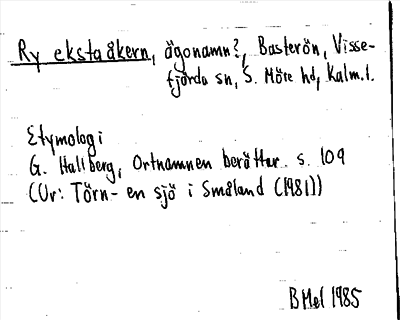 Ry ekstaåkern, ägonamn?, Basterön, Visse-
fjärda sn, S. Möre hd, Kalm.l.
Etymologi
G. Hallberg, Ortnamnen berättar. s. 109
(Ur: Törn- en sjö i Småland (1981))
BHel 1985